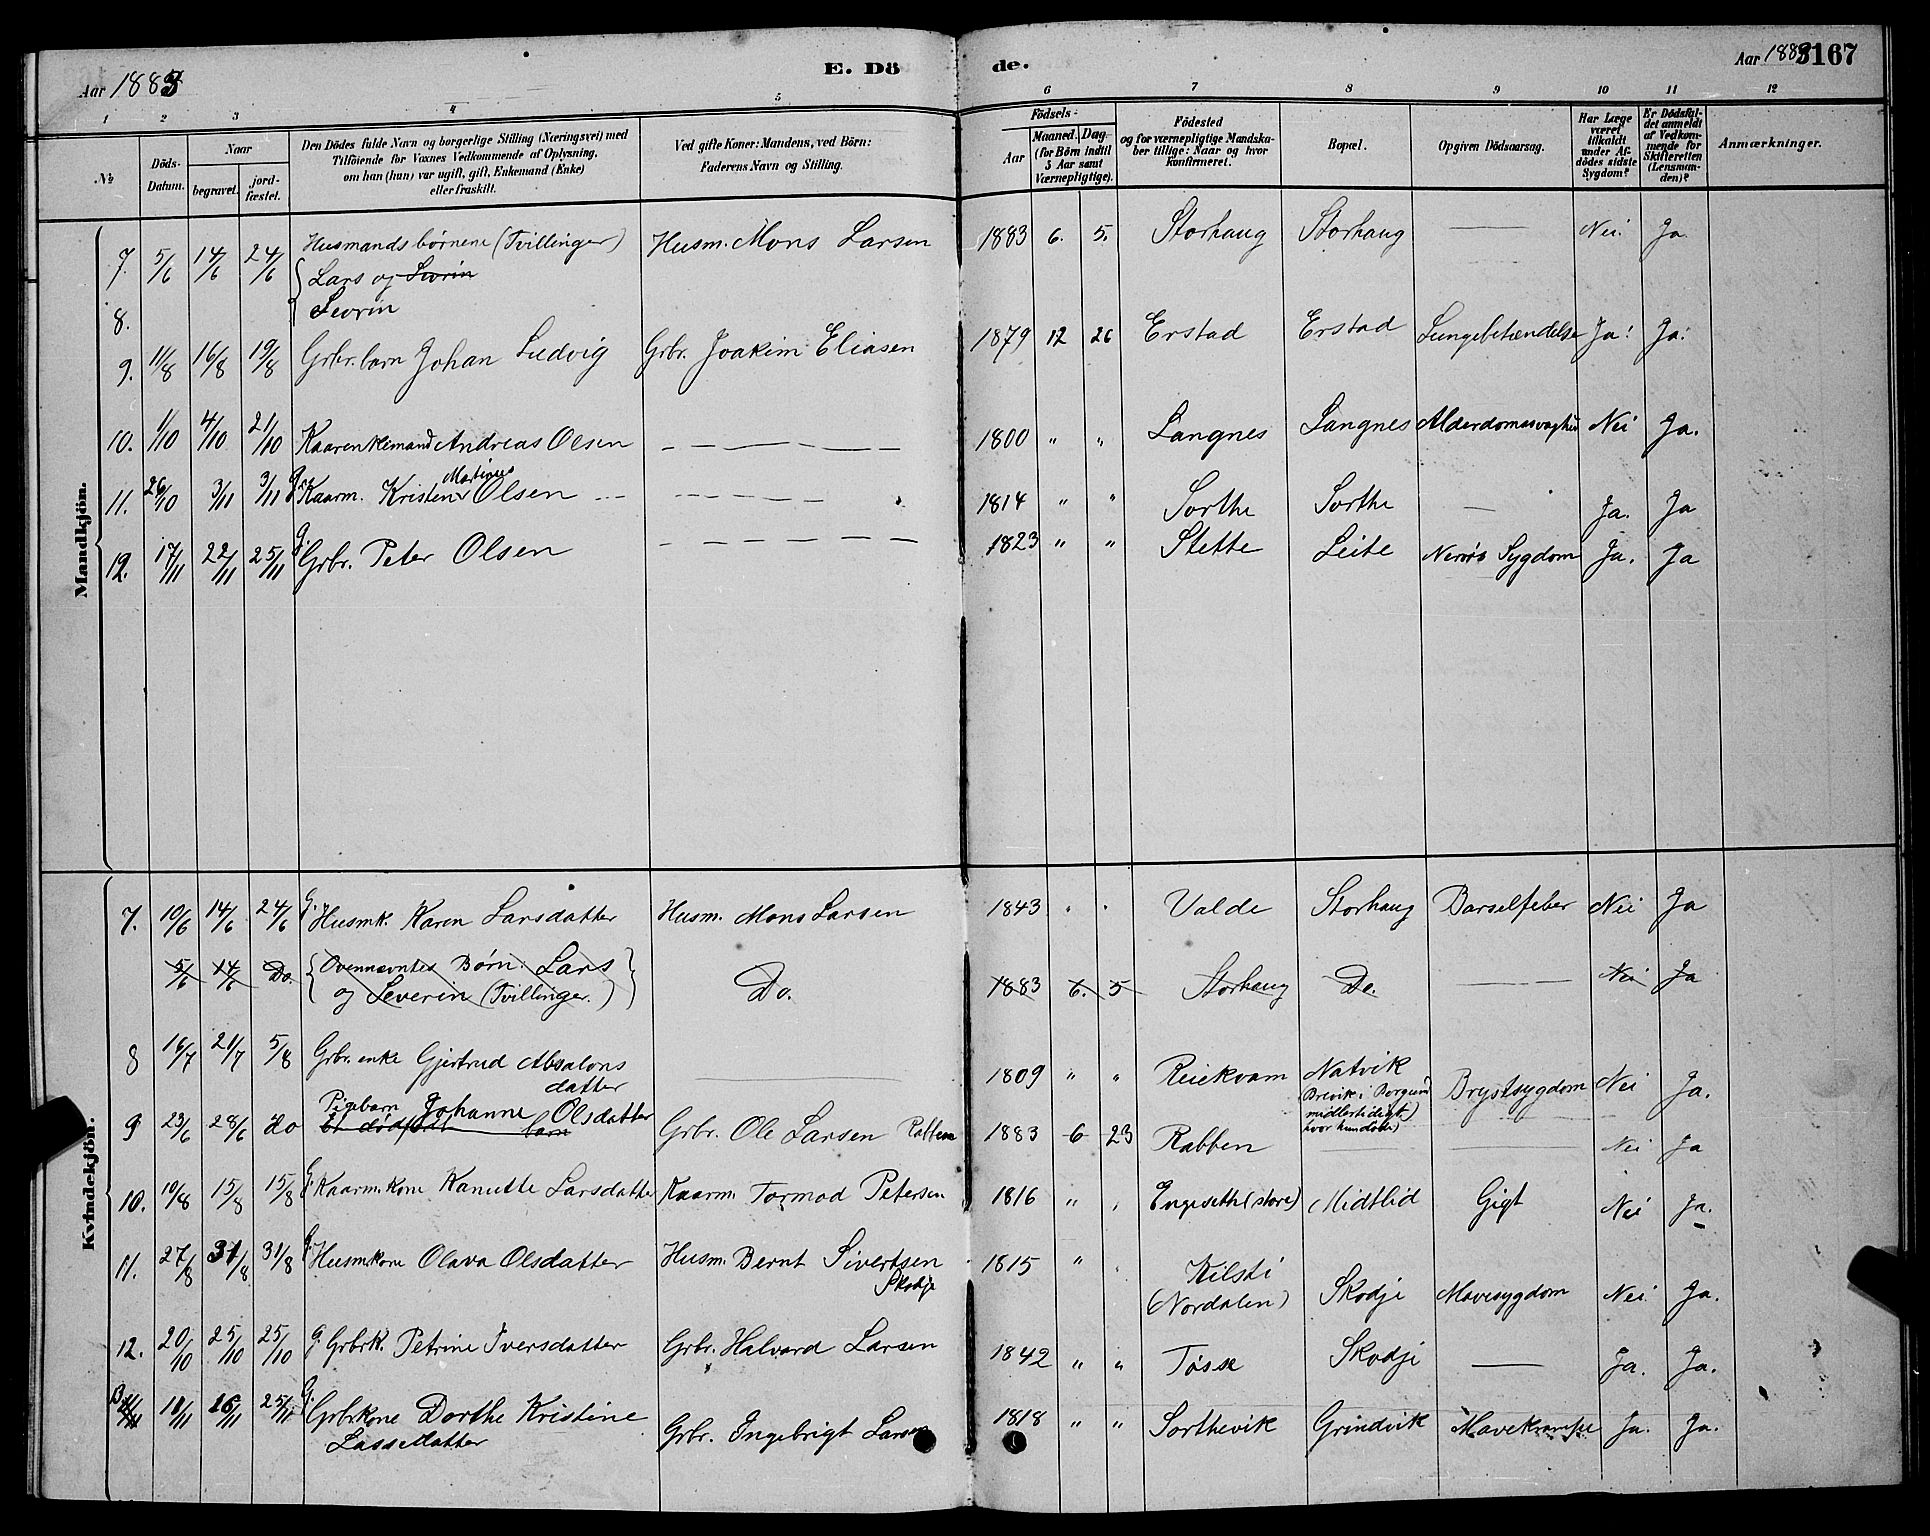 Aar 1883
E. Dö
de.
Aar 1883
167
1 2 3 4 5 6 7 8 9 10 11 12
№
Döds-
Datum.
Naar
begravet.
jord-
fæstet.
Den Dödes fulde Navn og borgerlige Stilling (Næringsvei) med
Tilföiende for Voxnes Vedkommende af Oplysning,
om han (hun) var ugift, gift, Enkemand (Enke)
eller fraskilt.
Ved gifte Koner: Mandens, ved Börn:
Faderens Navn og Stilling.
Födsels-
Aar
Maaned. Dag.
(for Börn indtil
5 Aar samt
Værnepligtige).
Födested
og for værnepligtige Mandska-
ber tillige: Naar og hvor
konfirmeret.
Bopæl.
Opgiven Dödsaarsag.
Har Læge
været
tilkaldt
under Af-
dödes sidste
Sygdom?
Er Dödsfal-
det anmeldt
af Vedkom-
mende for
Skifteretten
(Lensman-
den)?
Anmærkninger.
Mandkjön.
7. 5/6 14/6 24/6 Husmandsbørnene (Tvillinger) Husm. Mons Larsen 1883 6. 5. Storhaug Storhaug — Nei. Ja.
Lars og Sevrin
8. Sevrin
9. 11/8 16/8 19/8 Grbr. barn Johan Ludvig Grbr. Joakim Eliasen 1879 12 26 Erstad Erstad Lungebetændelse Ja! Ja!
10. 1/10 4/10 21/10 Kaarenkemand Andreas Olsen — — — — 1800 " " Langnes Langnes Alderdomssvaghed Nei Ja.
Martinus
11. 26/10 3/11 3/11 G. Kaarm. Kristen Olsen — — — — 1814 " " Sorthe Sorthe — Ja. Ja
12. 17/11 22/11 25/11 G. Grbr. Peter Olsen — — — — — 1823 " " Stette Leite Nervøs Sygdom Ja. Ja
Kvindekjön.
7. 10/6 14/6 24/6 G. Husmk. Karen Larsdatter Husm. Mons Larsen 1843 " " Valde Storhaug Barselfeber Nei Ja
5/6 14/6 Do. Ovennævntes Børn: Lars
og Severin (Tvillinger.) Do. 1883 6. 5 Storhaug Do. — Nei Ja
8 16/7 21/7 5/8 Grbr. enke Gjertrud Absalons
datter — 1809 " " Reiekvam Natvik
(Brevik i Borgund
midlertidigt
hvor hun døde) Brystsygdom Nei Ja.
9 23/6 28/6 Do Pigebarn Johanne Olsdatter
et dødfødt barn Grbr. Ole Larsen Rabben 1883 6 23 Rabben — — Nei Ja
10. 10/8 15/8 15/8 G. Kaarm. kone Kanutte Larsdatter Kaarm. Tormod Petersen 1816 " " Engesetth (store) Midtlid Gigt Nei Ja.
11. 27/8 31/8 31/8 G. Husmkone Olava Olsdatter Husm. Bernt Sivertsen
Skodje 1815 " " Kilsti
(Nordalen) Skodje Mavesygdom Nei Ja.
12. 20/10 25/10 25/10 G. Grbrk. Petrine Iversdatter Grbr. Halvard Larsen 1842 " " Tøsse Skodje — Ja. Ja.
13 11/11 16/11 25/11 G. Grbrkone Dorthe Kristine
Lassedatter Grbr. Ingebrigt Larsen 1818 " " Sorthevik Grindvik Mavekrampe Ja. Ja.